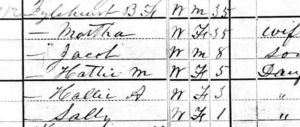 Pylehurst B. F. W M 35
— Martha W F 35 wife
— Jacob W M 8 son
— Hattie M W F 5 Dau
— Hallie A W F 3 "
— Sally W F 1 "